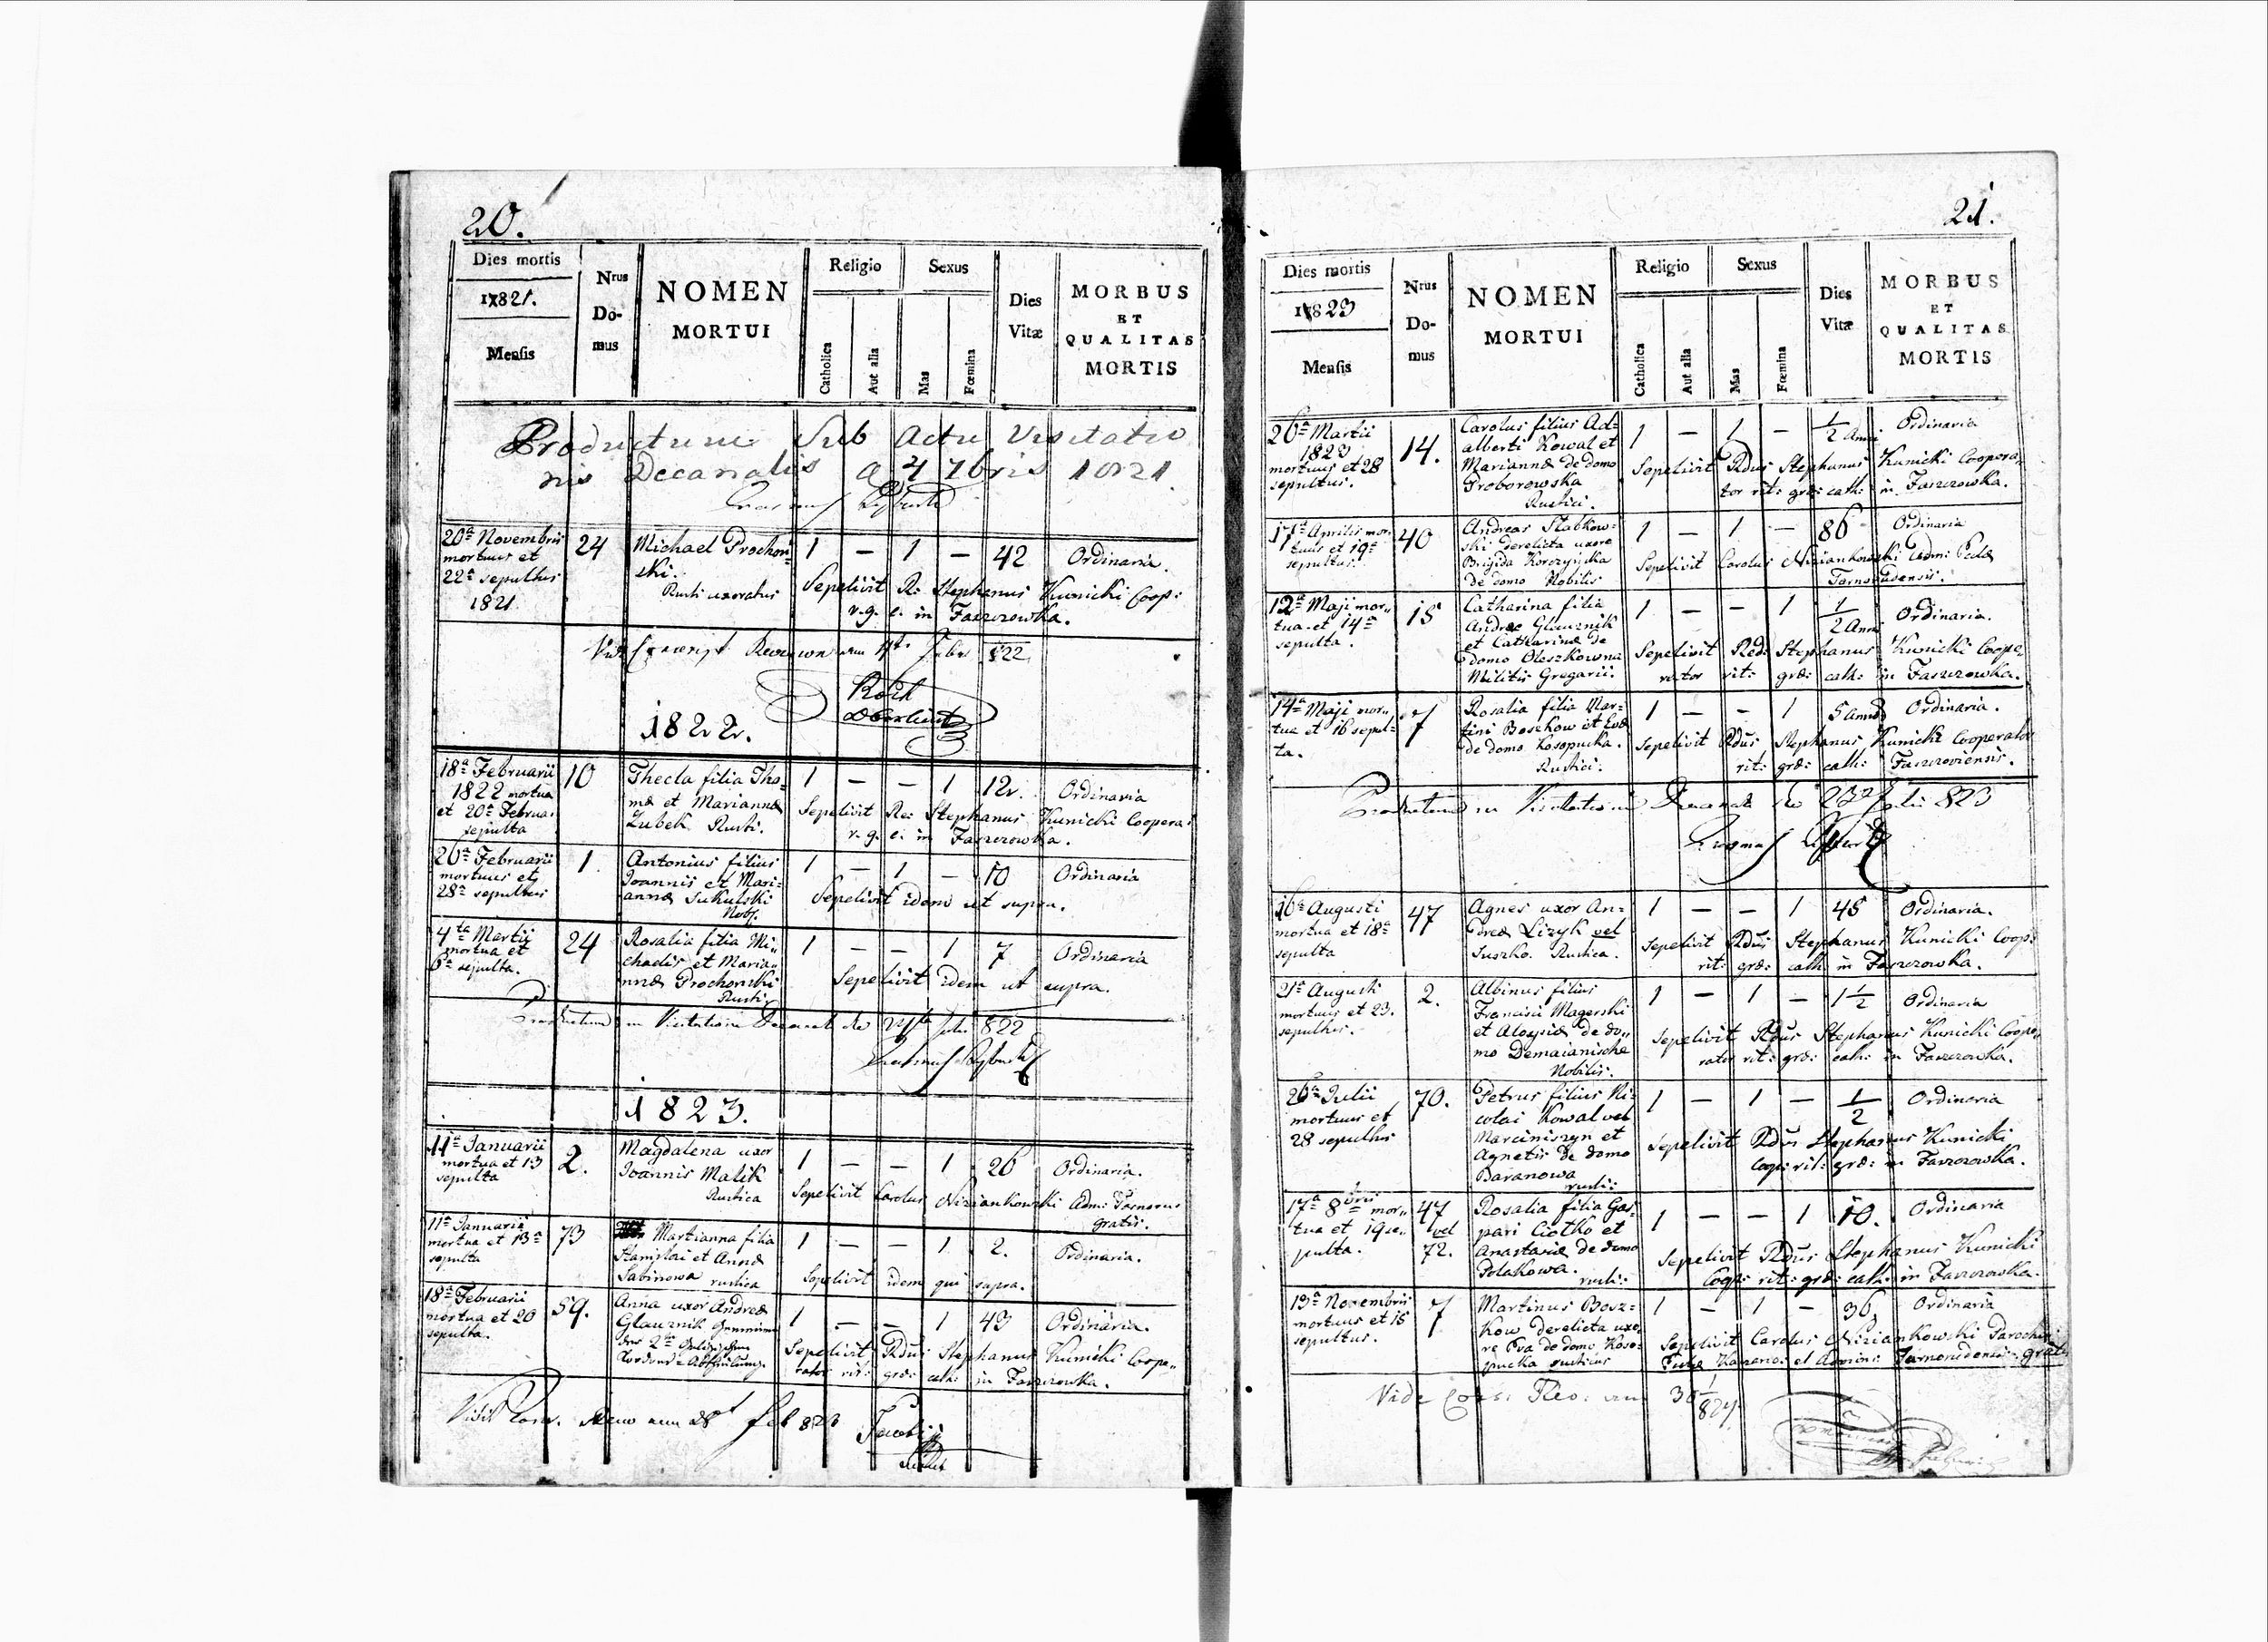 20.
Dies mortis
1821.
Mensis
Nrus
Do-
mus
NOMEN
MORTUI
Religio
Catholica
Aut alia
Sexus
Mas
Fœmina
Dies
Vitæ
MORBUS
ET
QUALITAS
MORTIS
Productum Sub Actu Visitatio
nis Decanalis a 4 7bris 1821
20a Novembris
mortuus et
22a sepultus
1821.
24
Michael Prochon-
ski.
Rusti: uxoratus
1 — 1 — 42 Ordinaria.
Sepelivit R: Stephanus Kunicki Coop:
r. g. c. in Faszczowka.
1822.
18a Februarii
1822 mortua
et 20a Februa.
sepulta
10
Thecla filia Tho-
mæ et Mariannæ
Zubek Rusti.
1 — — 1 12. Ordinaria
Sepelivit Re: Stephanus Kunicki Coopera:
r. g. c. in Faszczowka.
26a Februarii
mortuus et
28a sepultus
1.
Antonius filius
Joannis et Mari-
annæ Sukulski
Nob:
1 — 1 — 10 Ordinaria
Sepelivit idem ut supra.
4ta Martii
mortua et
6a sepulta.
24
Rosalia filia Mi-
chaelis et Maria-
nnæ Prochonski
Rusti:
1 — — 1 7 Ordinaria
Sepelivit idem ut supra.
Productum in Visitatione Decanali 822
1823.
11a Januarii
mortua et 13
sepulta
2.
Magdalena uxor
Joannis Malik
Rustica
1 — — 1 26 Ordinaria.
Sepelivit Carolus Niziankowski Adm: Tarnorus
gratis.
11a Januarii
mortua et 13a
sepulta
73
Martianna filia
Stanislai et Annæ
Sabinowa rustica
1 — — 1 2. Ordinaria.
Sepelivit idem qui supra.
18a Februarii
mortua et 20
sepulta.
59.
Anna uxor Andreæ
Glausnik
1 — — 1 43 Ordinaria.
Sepelivit Rdus Stephanus Kunicki Coope-
rator rit: græ: cath: in Faszczowka.
21.
Dies mortis
1823
Mensis
Nrus
Do-
mus
NOMEN
MORTUI
Religio
Catholica
Aut alia
Sexus
Mas
Fœmina
Dies
Vitæ
MORBUS
ET
QUALITAS
MORTIS
26a Martii
1823
mortuus et 28
sepultus.
14.
Carolus filius Ad-
alberti Kowal et
Mariannæ de domo
Proborowska
Rustici.
1 — 1 — 1/2 Anni Ordinaria
Sepelivit Rdus Stephanus Kunicki Coopera-
tor rit: græ: cath: in Faszczowka.
17a Aprilis mor-
tuus et 19a
sepultus.
40
Andreas Slabkow-
ski derelicta uxore
Brigida Korczyńska
de domo Nobilis
1 — 1 — 86 Ordinaria
Sepelivit Carolus Niziankowski Adm: Eccl:
Tarnorudensis.
12a Maji mor-
tua et 14a
sepulta.
15
Catharina filia
Andreæ Glausnik
et Catharinæ de
domo Oleszkowna
Militis Gregarii.
1 — — 1 1/2 Anni Ordinaria.
Sepelivit Red: Stephanus Kunicki Coope-
rator rit: græ: cath: in Faszczowka.
14a Maji mor-
tua et 16 sepul-
ta.
7
Rosalia filia Mar-
tini Boszkow et Evæ
de domo Kosopucka.
Rustici.
1 — — 1 5 annos Ordinaria.
Sepelivit Rdus Stephanus Kunicki Cooperator
rit: græ: cath: Faszczoviensis.
16a Augusti
mortua et 18a
sepulta
47
Agnes uxor An-
dreæ Lizyk vel
Juszko. Rustica.
1 — — 1 45 Ordinaria.
Sepelivit Rdus Stephanus Kunicki Coop:
rit: græ: cath: in Faszczowka.
21a Augusti
mortuus et 23.
sepultus.
2.
Albinus filius
Francisci Magerski
et Aloysiæ de do-
mo Demaianische
Nobilis.
1 — 1 — 1 1/2 Ordinaria
Sepelivit Rdus Stephanus Kunicki Coope-
rator rit: græ: cath: in Faszczowka.
26a Julii
mortuus et
28 sepultus
70.
Petrus filius Ni-
colai Kowal vel
Marciniszyn et
Agnetis de domo
Baranowa
rusti:
1 — 1 — 1/2 Ordinaria
Sepelivit Rdus Stephanus Kunicki
Coop: rit: græ: in Faszczowka.
17a 8bris mor-
tua et 19 se-
pulta.
47
vel
72.
Rosalia filia Gas-
pari Ciotko et
Anastasiæ de domo
Polakowa.
rusti:
1 — — 1 10. Ordinaria
Sepelivit Rdus Stephanus Kunicki
Coop: rit: græ: cath: in Faszczowka.
13a Novembris
mortuus et 15
sepultus.
7
Martinus Bosz-
kow derelicta uxo-
re Eva de domo Koso-
pucka rusticus
1 — 1 — 36 Ordinaria
Sepelivit Carolus Niziankowski Parochus